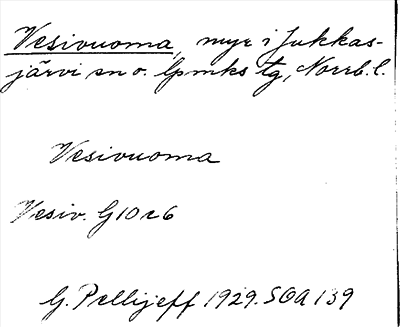 Vesivuoma, myr i Jukkas-
järvi sn o. lpmks tg, Norrb. l.
Vesivuoma
Vesiv. G10r6
G. Pellijeff 1929. SOA 139